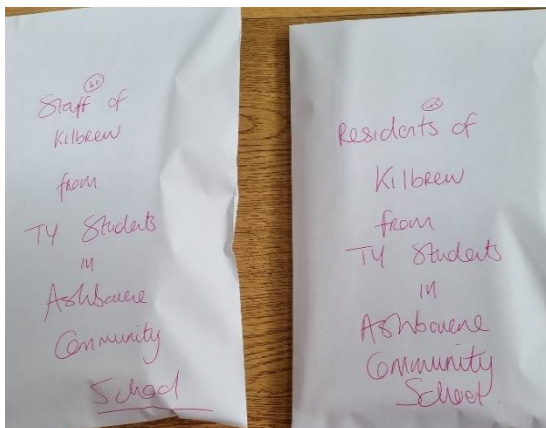 Staff of
Kilbrew
from
TY Students
in
Ashbourne
Community
School
Residents of
Kilbrew
from
TY Students
in
Ashbourne
Community
School